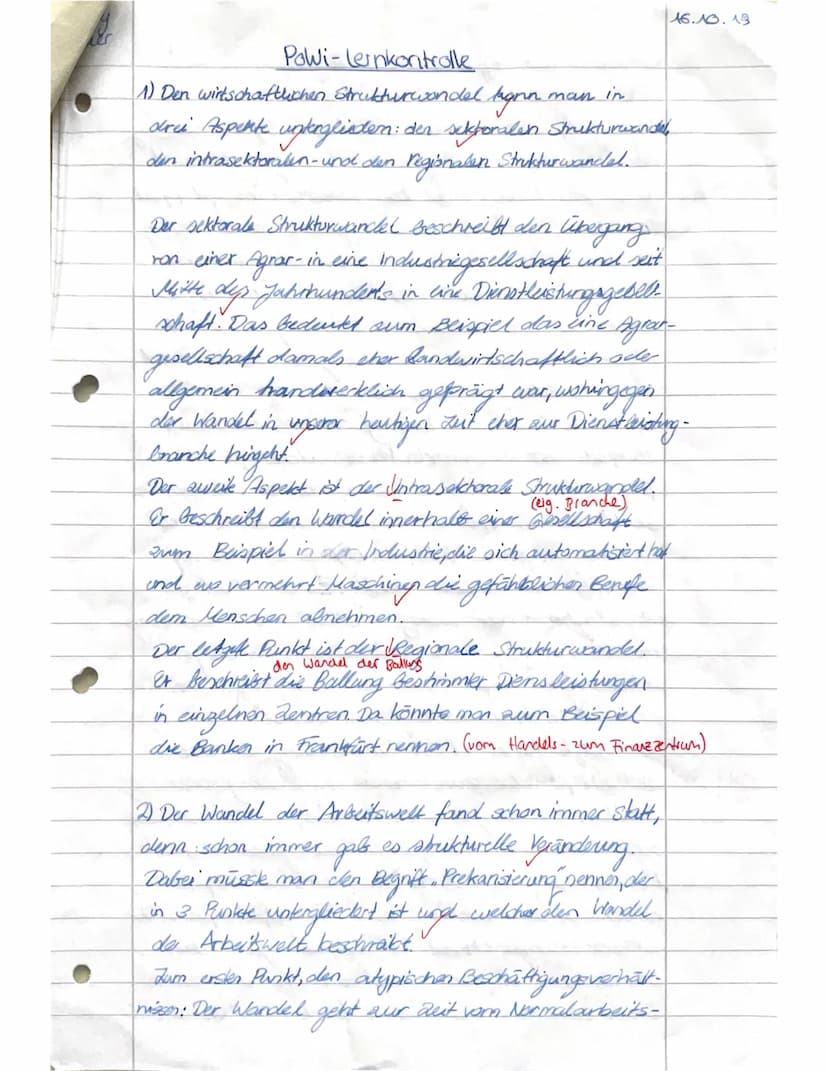 16.10.19
PoWi-Lernkontrolle
1) Den wirtschaftlichen Strukturwandel kann man in
drei Aspekte untergliedern: den sektoralen Strukturwandel,
den intrasektoralen- und den regionalen Strukturwandel.
Der sektorale Strukturwandel beschreibt den Übergang
von einer Agrar- in eine Industriegesellschaft und seit
Mitte des Jahrhunderts in eine Dienstleistungsgesell-
schaft. Das bedeutet zum Beispiel das eine Agrar-
gesellschaft damals eher landwirtschaftlich oder
allgemein handwerklich geprägt war, wohingegen
der Wandel in unserer heutigen Zeit eher zur Dienstleistung-
branche hingeht.
Der zweite Aspekt ist der Intrasektorale Strukturwandel.
(eig. Branche)
Er beschreibt den Wandel innerhalb einer Gesellschaft
zum Beispiel in der Industrie, die sich automatisiert hat
und wo vermehrt Maschinen die gefährlichen Berufe
dem Menschen abnehmen.
Der letzte Punkt ist der Regionale Strukturwandel.
den Wandel der Ballung
Er beschreibt die Ballung bestimmter Diensleistungen
in einzelnen Zentren. Da könnte man zum Beispiel
die Banken in Frankfurt nennen. (vom Handels- zum Finanzzentrum)
2) Der Wandel der Arbeitswelt fand schon immer statt,
denn schon immer gab es strukturelle Veränderung.
Dabei müsste man den Begriff „Prekarisierung" nennen, der
in 3 Punkte untergliedert ist und welcher den Wandel
der Arbeitswelt beschreibt.
Zum ersten Punkt, den atypischen Beschäftigungsverhält-
nissen: Der Wandel geht zur Zeit vom Normalarbeits-